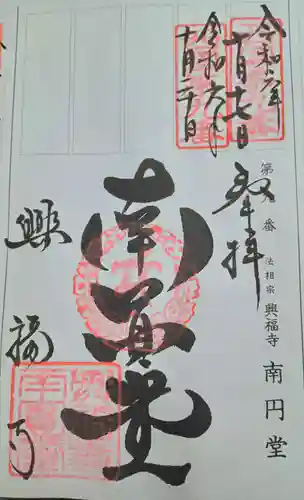 令和六年
十月十七日
令和六年
十月二十日
奉拝
第九番 法相宗 興福寺 南円堂
南円堂
興福寺